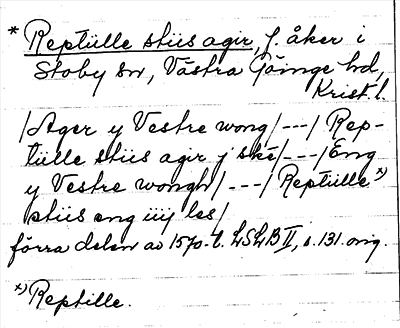 * Reptülle stüs agir, f. åker i
Stoby sn, Västra Göinge hd,
Krist. l.
/Ager y Vestre wong/---/ Rep-
tülle stüs agir j ske/---/Eng
y Vestre wongh/---/ Reptülle x)
stüs eng iiij les/
förra delen av 1570-t. LSLB II, s. 131. orig.
x) Reptille.